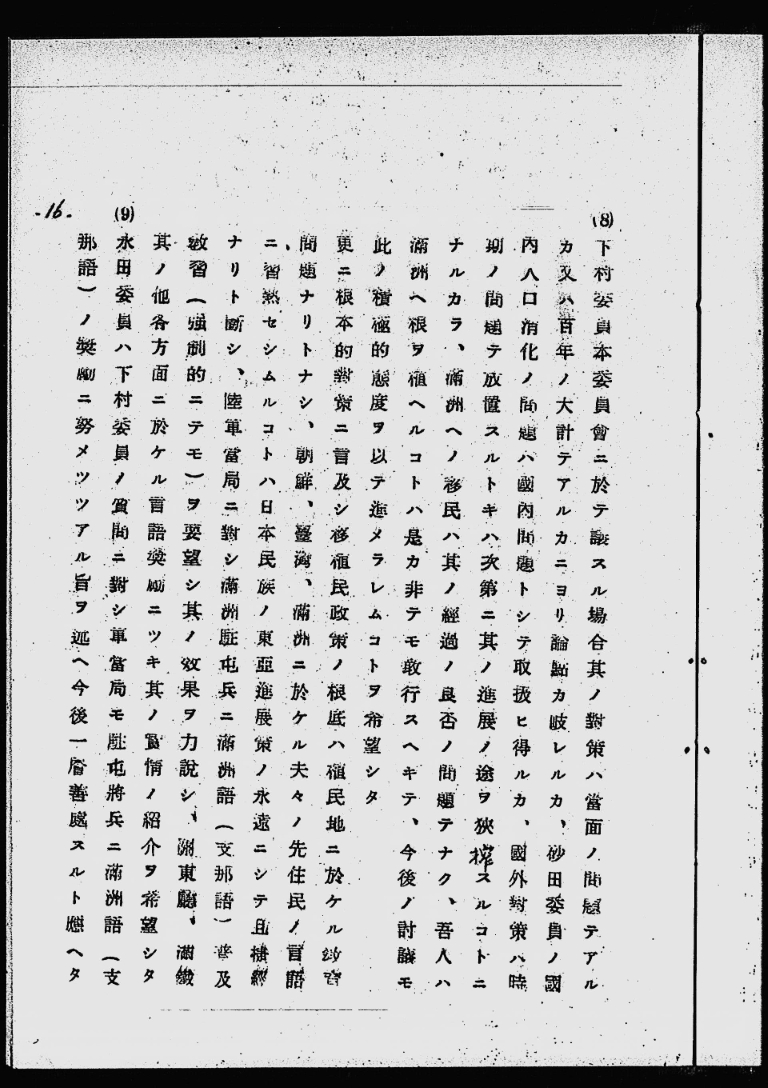 (8) 下村委員本委員會ニ於テ議スル場合其ノ對策ハ當面ノ問題テアル
カ又ハ百年ノ大計テアルカニヨリ論點カ岐レルカ、砂田委員ノ國
內人口消化ノ問題ハ國內問題トシテ取扱ヒ得ルカ、國外對策ハ時
期ノ問題テ放置スルトキハ次第ニ其ノ進展ノ途ヲ狹搾スルコトニ
ナルカラ、滿洲ヘノ移民ハ其ノ經過ノ良否ノ問題テナク、吾人ハ
滿洲ヘ根ヲ植ヘルコトハ是カ非テモ敢行スヘキテ、今後ノ討議モ
此ノ積極的態度ヲ以テ進メラレムコトヲ希望シタ
更ニ根本的對策ニ言及シ移植民政策ノ根底ハ植民地ニ於ケル
問題ナリトナシ、朝鮮、臺灣、滿洲ニ於ケル夫々ノ先住民ノ言語
ニ習熟セシムルコトハ日本民族ノ東亞進展策ノ永遠ニシテ且
ナリト斷シ、陸軍當局ニ對シ滿洲駐屯兵ニ滿洲語(支那語)普及
敎習(强制的ニテモ)ヲ要望シ其ノ效果ヲ力說シ、關東廳、滿鐵
其ノ他各方面ニ於ケル言語奬勵ニツキ其ノ實情ノ紹介ヲ希望シタ
(9) 永田委員ハ下村委員ノ質問ニ對シ軍當局モ駐屯將兵ニ滿洲語(支
那語)ノ奬勵ニ努メツツアル旨ヲ述ヘ今後一層善處スルト應ヘタ
-16-